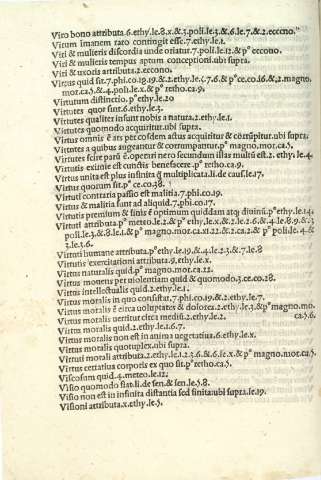 Viro bono attributa.6.ethy.le.8.x &.3.poli.le.3.&.6.le.7.&.2.ecccno.
Virum imanem raro contingit esse.7.ethy.le.1.
Viri & mulieris discordia unde oriatur.7.poli.le.12.& pº eccono.
Viri & mulieris tempus aptum conceptioni.ubi supra.
Viri & uxoris attributa.2.eccono.
Virtus quid sit.7.phi.co.19.&.2.ethy.le.5.7.6.& pº ce.co.16.&.2.magno.
mor.ca.5.&.4.poli.le.x.& pº retho.9.
Virtutum distinctio.pº ethy.le.20
Virtutes quot sint.6.ethy.le.3.
Virtutes qualiter insint nobis a natura.2.ethy.le.1.
Virtutes quomodo acquiritur.ubi supra.
Virtus omnis ē ars per eosdem actus acquiritur & corrūpitur.ubi supra.
Virtutes a quibus augentur & corrumpantur.pº magno.mor.ca.5.
Virtutes scire parū ē.operari nero secundum illas multū est.2.ethy.le.4.
Virtutis eximie est cunctis benefacere.pº retho.ca.9.
Virtus unita est plus infinita q̄ multiplicata.li.de caus.le.17.
Virtus quorum sit.pº ce.co.38.
Virtuti contraria passio est malitia.7.phi.co.19.
Virtus & malitia sunt ad aliquid.7.phi.co.17.
Virtutis premium & finis ē optimum quiddam atq; diuinū.pº ethy.le.14.
Virtuti attributa.pº meteo.le.2.& pº ethy.le.x.&.2.le.2.6.&.4.le.8.9.&.3
poli.le.3.&.8.le.1.& pº magno.mor.ca.x1.22.&.2.ca.2.& pº poli.le.4.&
3.le.3.6.
Virtuti humane attributa.pº ethy.le.19.&.4.le.2.3.&.7.le.8
Virtutis exercitationi attributa.9.ethy.le.x.
Virtus naturalis quid.pº magno.mor.ca.12.
Virtus mouens per uiolentiam quid & quomodo.3.ce.co.28.
Virtus intellectualis quid.2.ethy.le.1.
Virtus moralis in quo consistat.7.phi.co.19.&.2.ethy.le.7.
Virtus moralis ē circa uoluptates & dolores.2.ethy.le.3.& pº magno.mo.
Virtus moralis uertitur circa medium.2.ethy.le.2. ca.5.6.
Virtus moralis quid.2.ethy.le.1.6.7.
Virtus moralis non est in anima uegetatiua.6.ethy.le.x.
Virtus moralis quotuplex.ubi supra.
Virtuti morali attributa.2.ethy.le.1.2.3.6.&.6.le.x.& pº magno.mor.ca.5.
Virtus certatiua corporis ex quo sit.pº retho.ca.5.
Viscosum quid.4.meteo.le.12.
Visio quomodo fiat.li.de sen.& sen.le.5.8.
Visio non est in infinita distantia sed finita.ubi supra.le.19.
Visioni attributa.x.ethy.le.5.